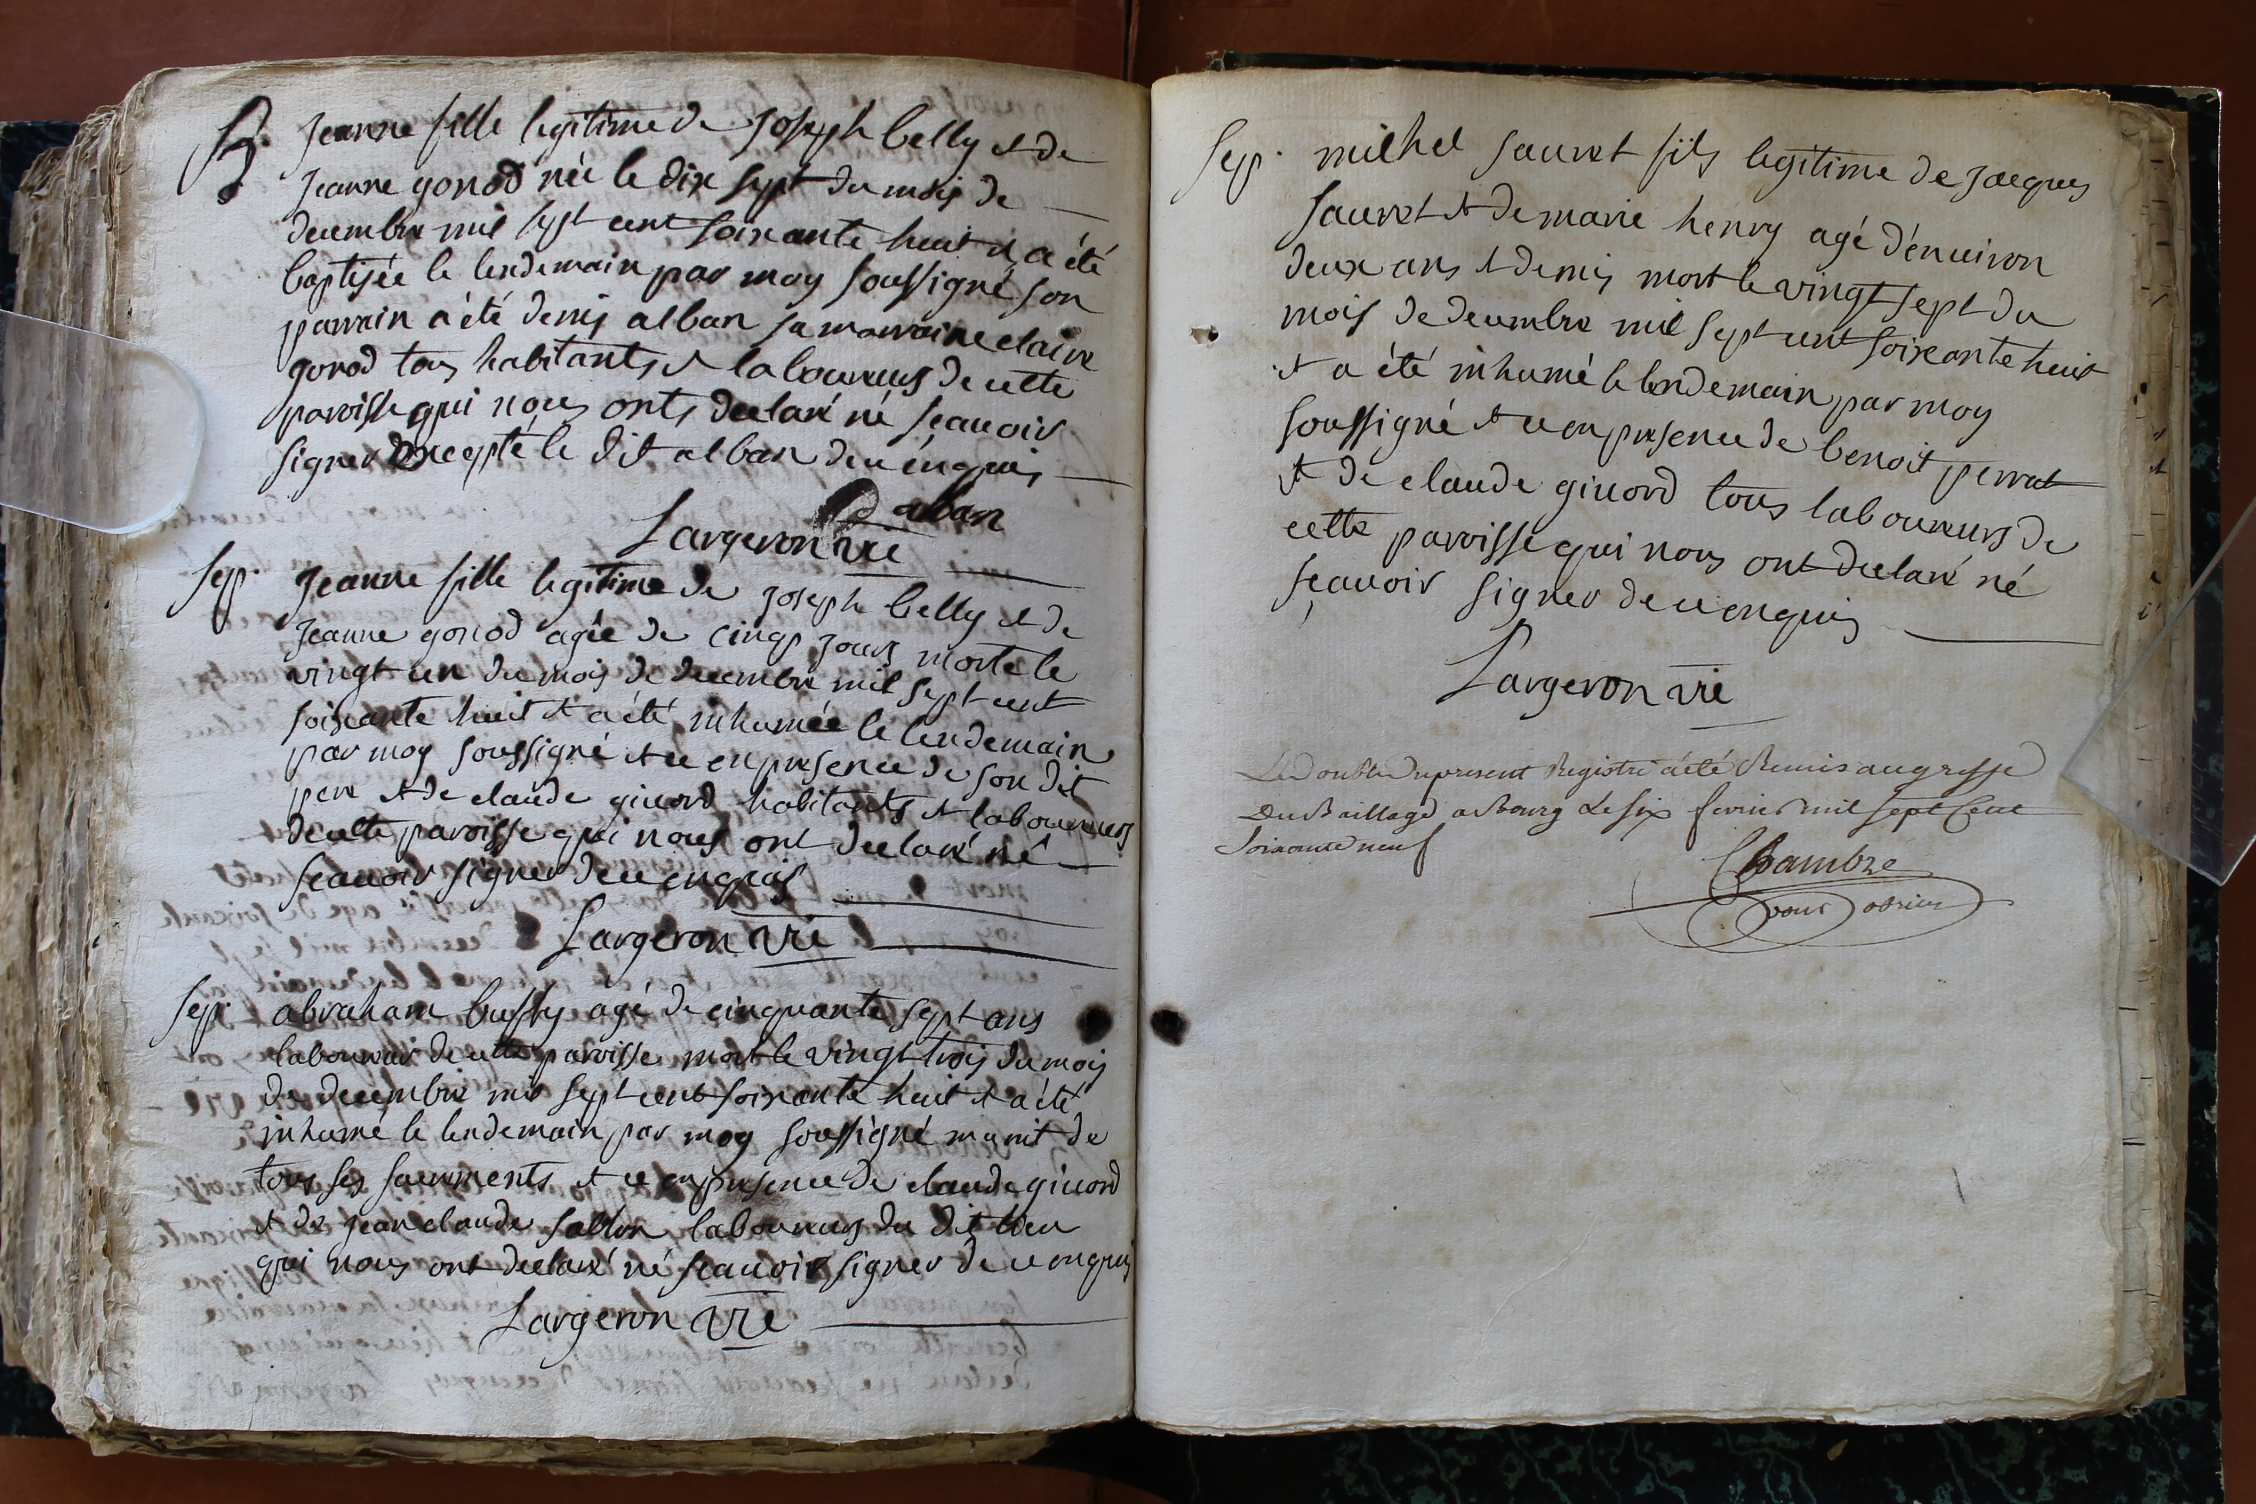 B. Jeanne fille legitime de Joseph belly et de
Jeanne gonod née le dix sept du mois de
decembre mil sept cent soixante huit et a été
baptisée le lendemain par moy soussigné son
parrain a été denis alban sa marraine claire
gonod tous habitants et laboureurs de cette
paroisse qui nous onts declaré né scavoir
signer excepté le dit alban de ce enquis
alban
Largeron vic
Sep. Jeanne fille legitime de Joseph belly et de
Jeanne gonod agée de cinqs jours morte le
vingt un du mois de decembre mil sept cent
soixante huit et a été inhumée le lendemain
par moy soussigné et ce en presence de son dit
pere et de claude givord habitants et laboureurs
de cette paroisse qui nous ont declaré né
scavoir signer de ce enquis
Largeron vic
Sep. abraham buffy agé de cinquante sept ans
laboureur de cette paroisse mort le vingt trois du mois
de decembre mil sept cent soixante huit et a été
inhumé le lendemain par moy soussigné munit de
tous ses sacrements et ce en presence de claude givord
et de jean claude sallon laboureurs du dit lieu
qui nous ont declaré né scavoir signer de ce enquis
Largeron vic
Sep. michel sauvet fils legitime de Jacques
sauvet et de marie henry agé d'environ
deux ans et demis mort le vingt sept du
mois de decembre mil sept cent soixante huit
et a été inhumé le lendemain par moy
soussigné et ce en presence de benoit perrat
et de claude givord tous laboureurs de
cette paroisse qui nous ont declaré né
sçavoir signer de ce enquis
Largeron vic
Le Double du present Registre a été Remis au greffe
Du Baillage a Bourg Le six fevrier mil sept Cent
Soixante neuf
Chambre